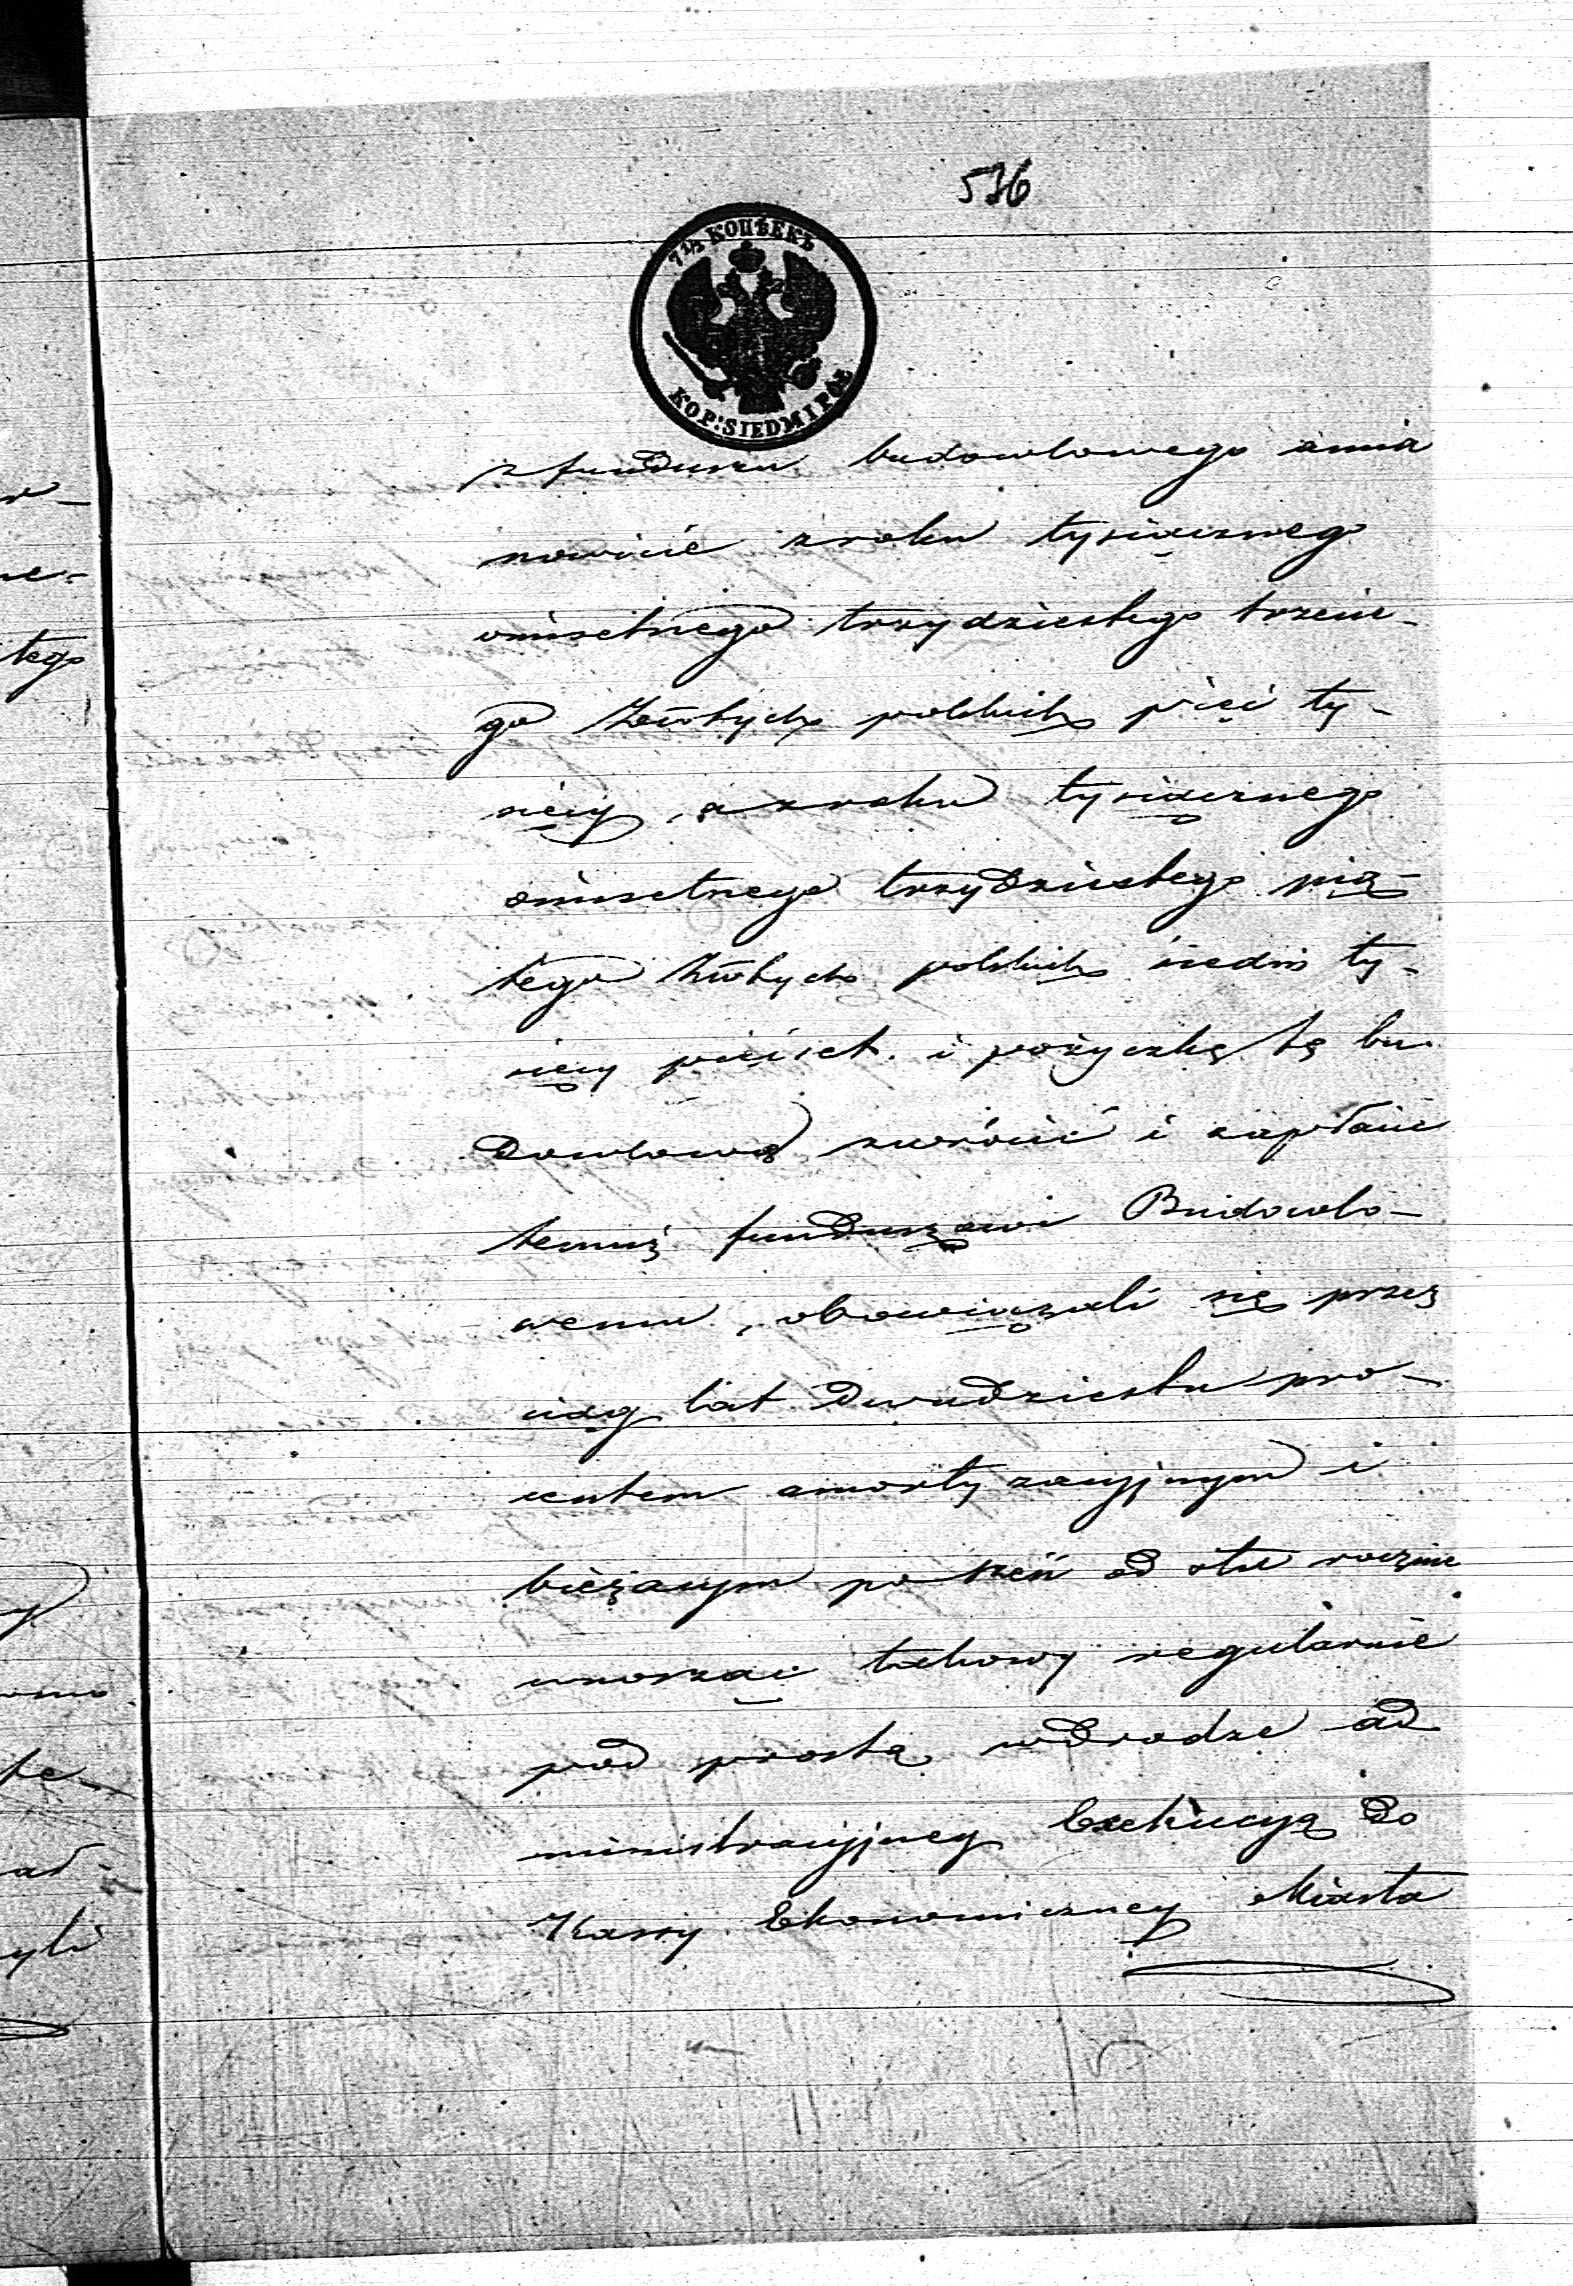 536
7½ КОПѢЕКЪ
KOP: SIEDM I PÓŁ
z funduszu budowlowego a mia
nowicie z roku tysiącznego
ośmsetnego trzydziestego trzecie-
go Złotych polskich pięć ty-
sięcy, a z roku tysiącznego
ośmsetnego trzydziestego pią-
tego Złotych polskich siedm ty-
sięcy pięćset. i pożyczkę tę bu
dowlową zwrócić i zapłacić
temuż funduszowi Budowlo-
wemu, obowiązali się przez
ciąg lat dwudziestu pro-
centem amortyzacyjnym i
bieżącym po sześć od sta rocznie
wnosząc takowy regularnie
pod prostą w drodze ad
ministracyjney Exekucyą do
Kassy Ekonomiczney Miasta
tego
yli